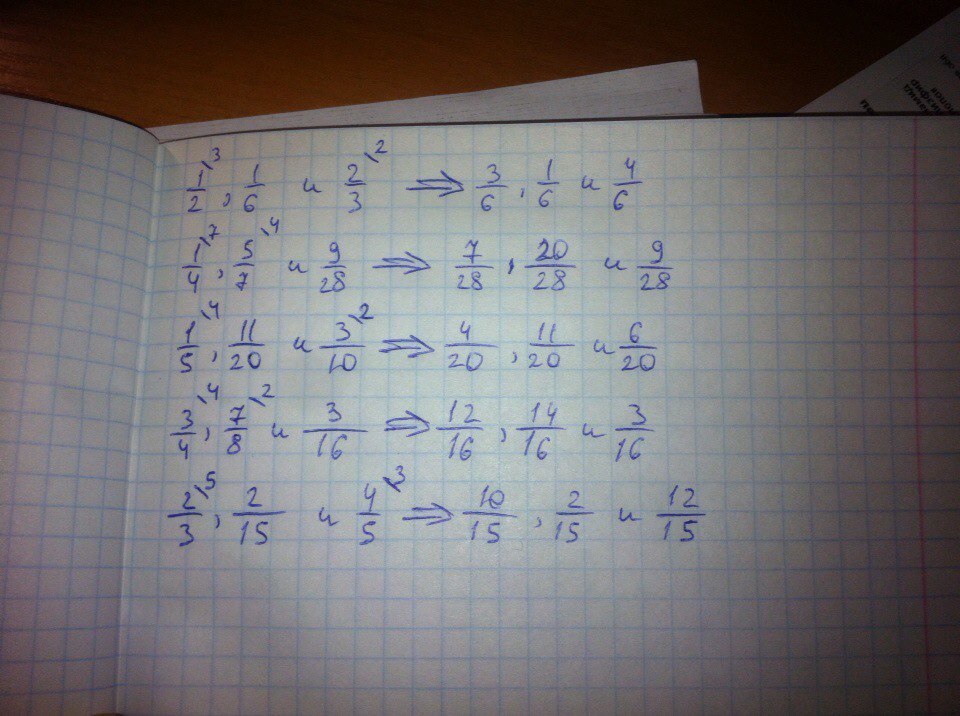 1/2\3, 1/6 и 2/3\2 ⇒ 3/6, 1/6 и 4/6
1/4\7, 5/7\4 и 9/28 ⇒ 7/28, 20/28 и 9/28
1/5\4, 11/20 и 3/10\2 ⇒ 4/20, 11/20 и 6/20
3/4\4, 7/8\2 и 3/16 ⇒ 12/16, 14/16 и 3/16
2/3\5, 2/15 и 4/5\3 ⇒ 10/15, 2/15 и 12/15